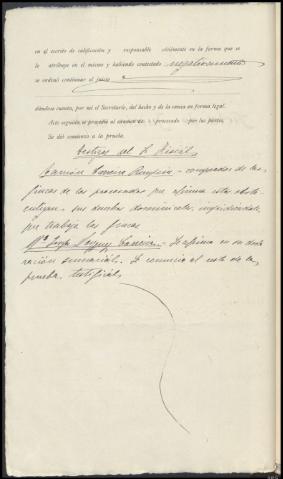 en el escrito de calificación y responsable civilmente en la forma que se
le atribuye en el mismo y habiendo contestado negativamente
se ordenó continuar el juicio
dándose cuenta, por mí el Secretario, del hecho y de la causa en forma legal.
Acto seguido, se procedió al de procesado por las partes.
Se dió comienzo a la prueba.
Testigos del S. Fiscal
Carreira - comprador de las
fincas de los procesados que afirma estos obsta-
culizan sus derechos dominicales, impidiéndole
que trabaje las fincas
Mª Vázquez Carreira.- Se afirma en su decla-
ración sumarial. Se renuncia al resto de la
prueba testifical.